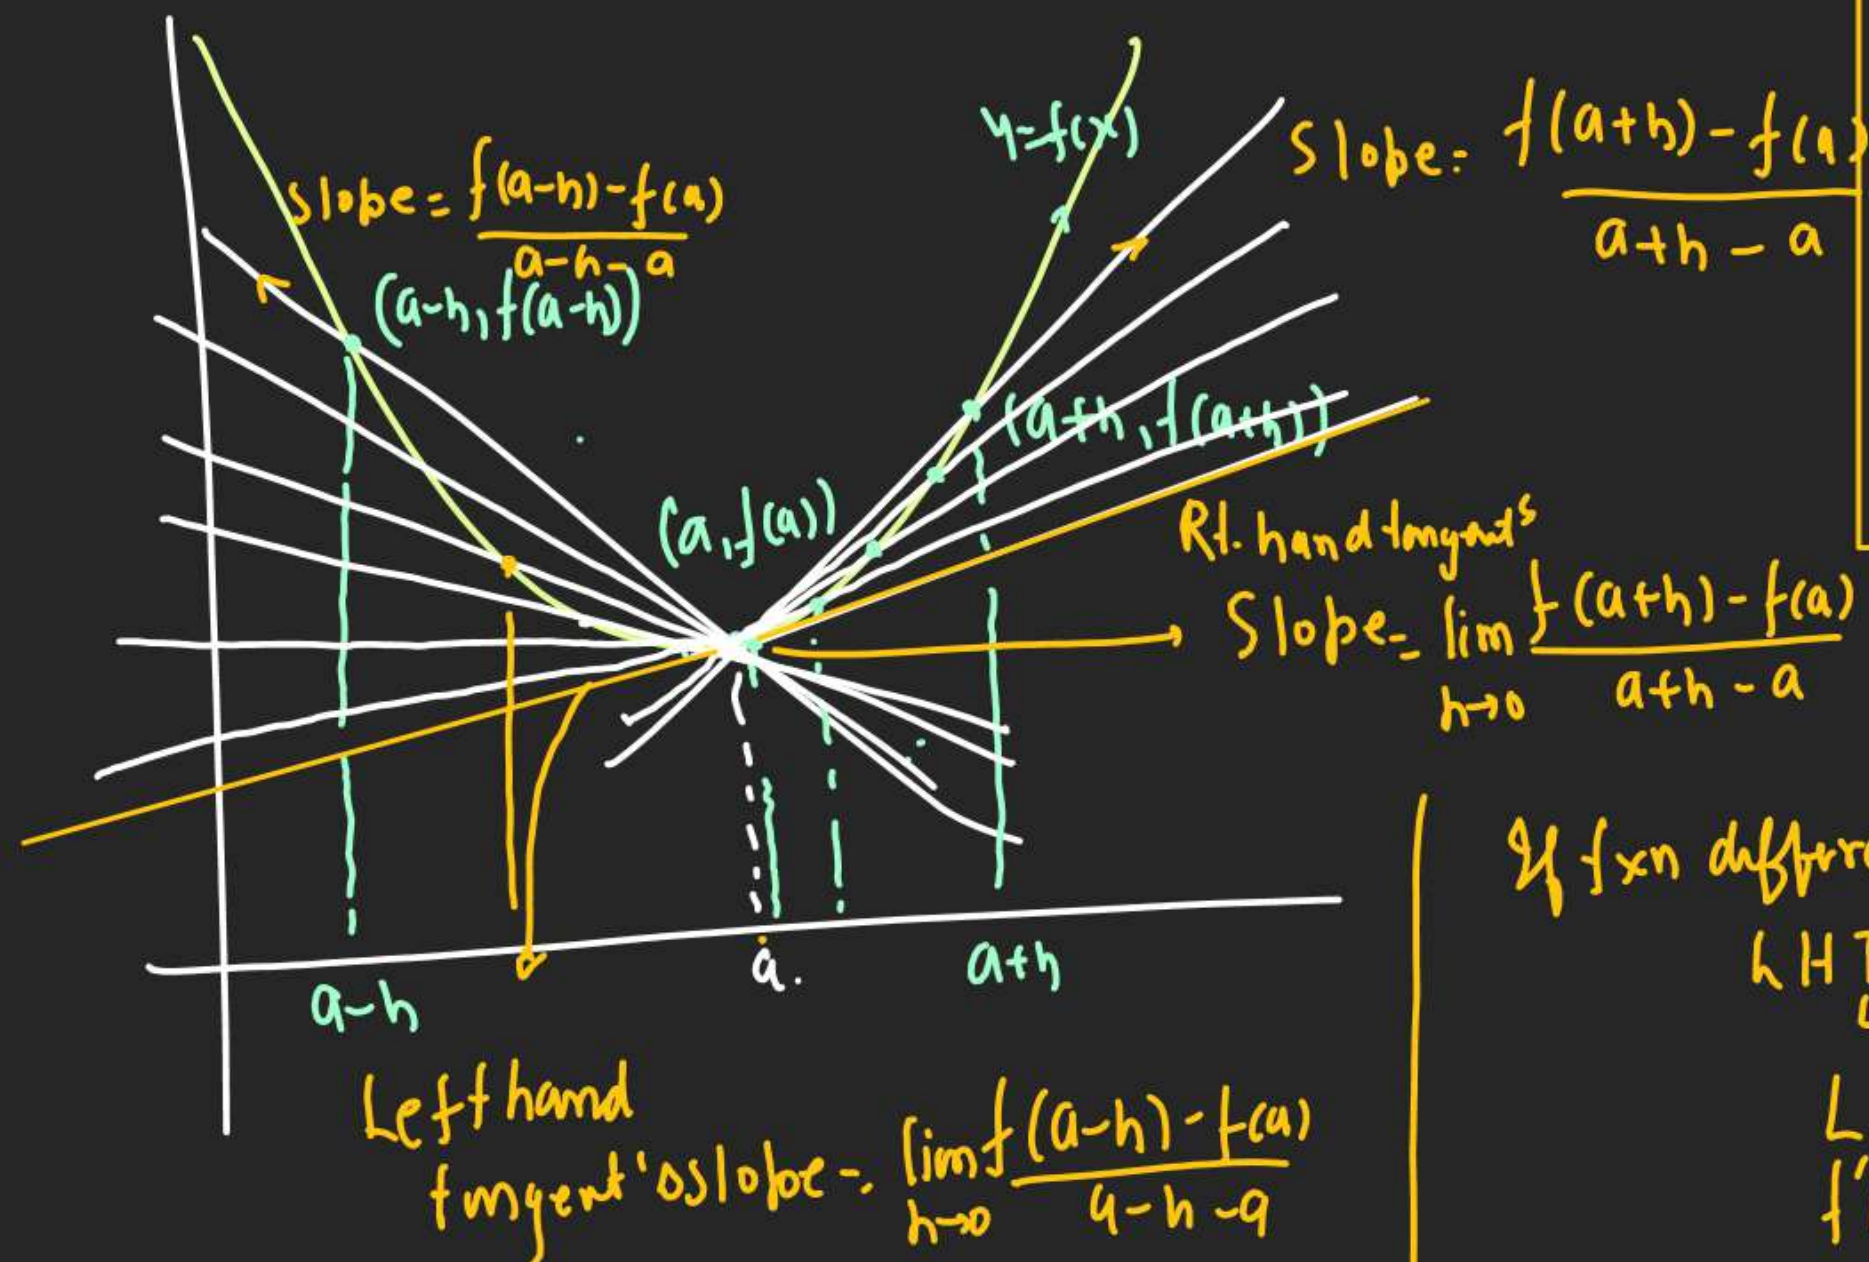 y=f(x)
Slope = f(a-h)-f(a)
a-h-a
(a-h, f(a-h))
Slope = f(a+h)-f(a)
a+h-a
(a+h, f(a+h))
(a, f(a))
Rt. hand tangent's
Slope = lim f(a+h)-f(a)
h→0 a+h-a
a-h
a.
a+h
Left hand
tangent's slope = lim f(a-h)-f(a)
h→0 a-h-a
If fxn
LHT
L
f'